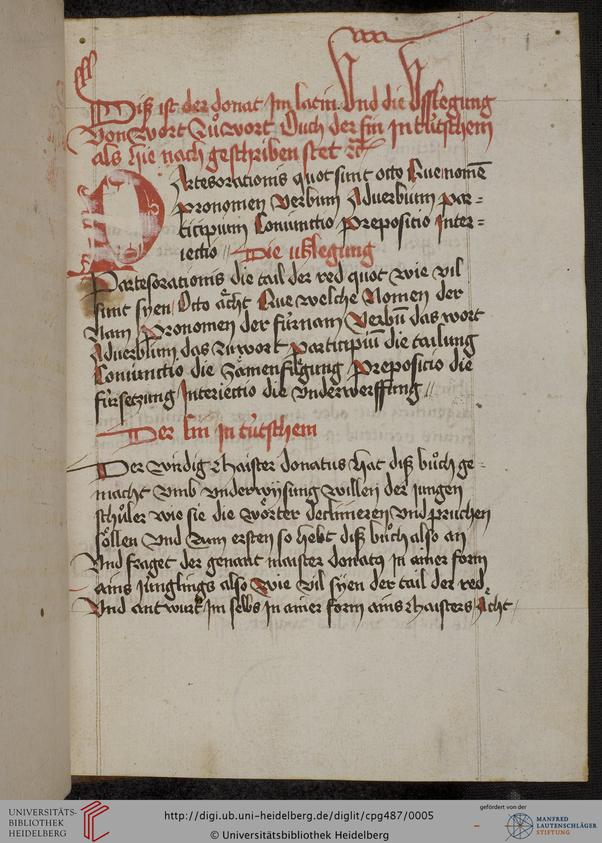 Diß ist der donat Im latin Vnd die Vsslegung
Von wort zů wort Ouch der sin In tütschem
als hie nach geschriben stet ꝛc
Partesorationis quot sunt octo Que nomē
pronomen Verbum Aduerbium par=
ticipium Coniunctio Preposicio Inter=
iectio Die vßlegung
Partesorationis die tail der red quot wie vil
sunt syen Octo ächt Que welche Nomen der
Nam Pronomen der fürnam Verbū das wort
Aduerbium das zuwort participiū die tailung
Coniunctio die zämenfügung Preposicio die
fürsetzung Interiectio die vnderwerffung
Der sin In tütschem
Der wirdig maister donatus hat diß bůch ge=
macht vmb vnderwysung willen der iungen
schůler wie sie die wörter declinieren vnd pruchen
söllen Vnd zum ersten so hebt diß bůch also an
Vnd fraget der genant maister donatus In ainer form
ains Jünglings also Wie vil syen der tail der red
Vnd antwurt Im selbs In ainer form ains maisters Ächt
UNIVERSITÄTS-
BIBLIOTHEK
HEIDELBERG
http://digi.ub.uni-heidelberg.de/diglit/cpg487/0005
© Universitätsbibliothek Heidelberg
gefördert von der
MANFRED
LAUTENSCHLÄGER
STIFTUNG